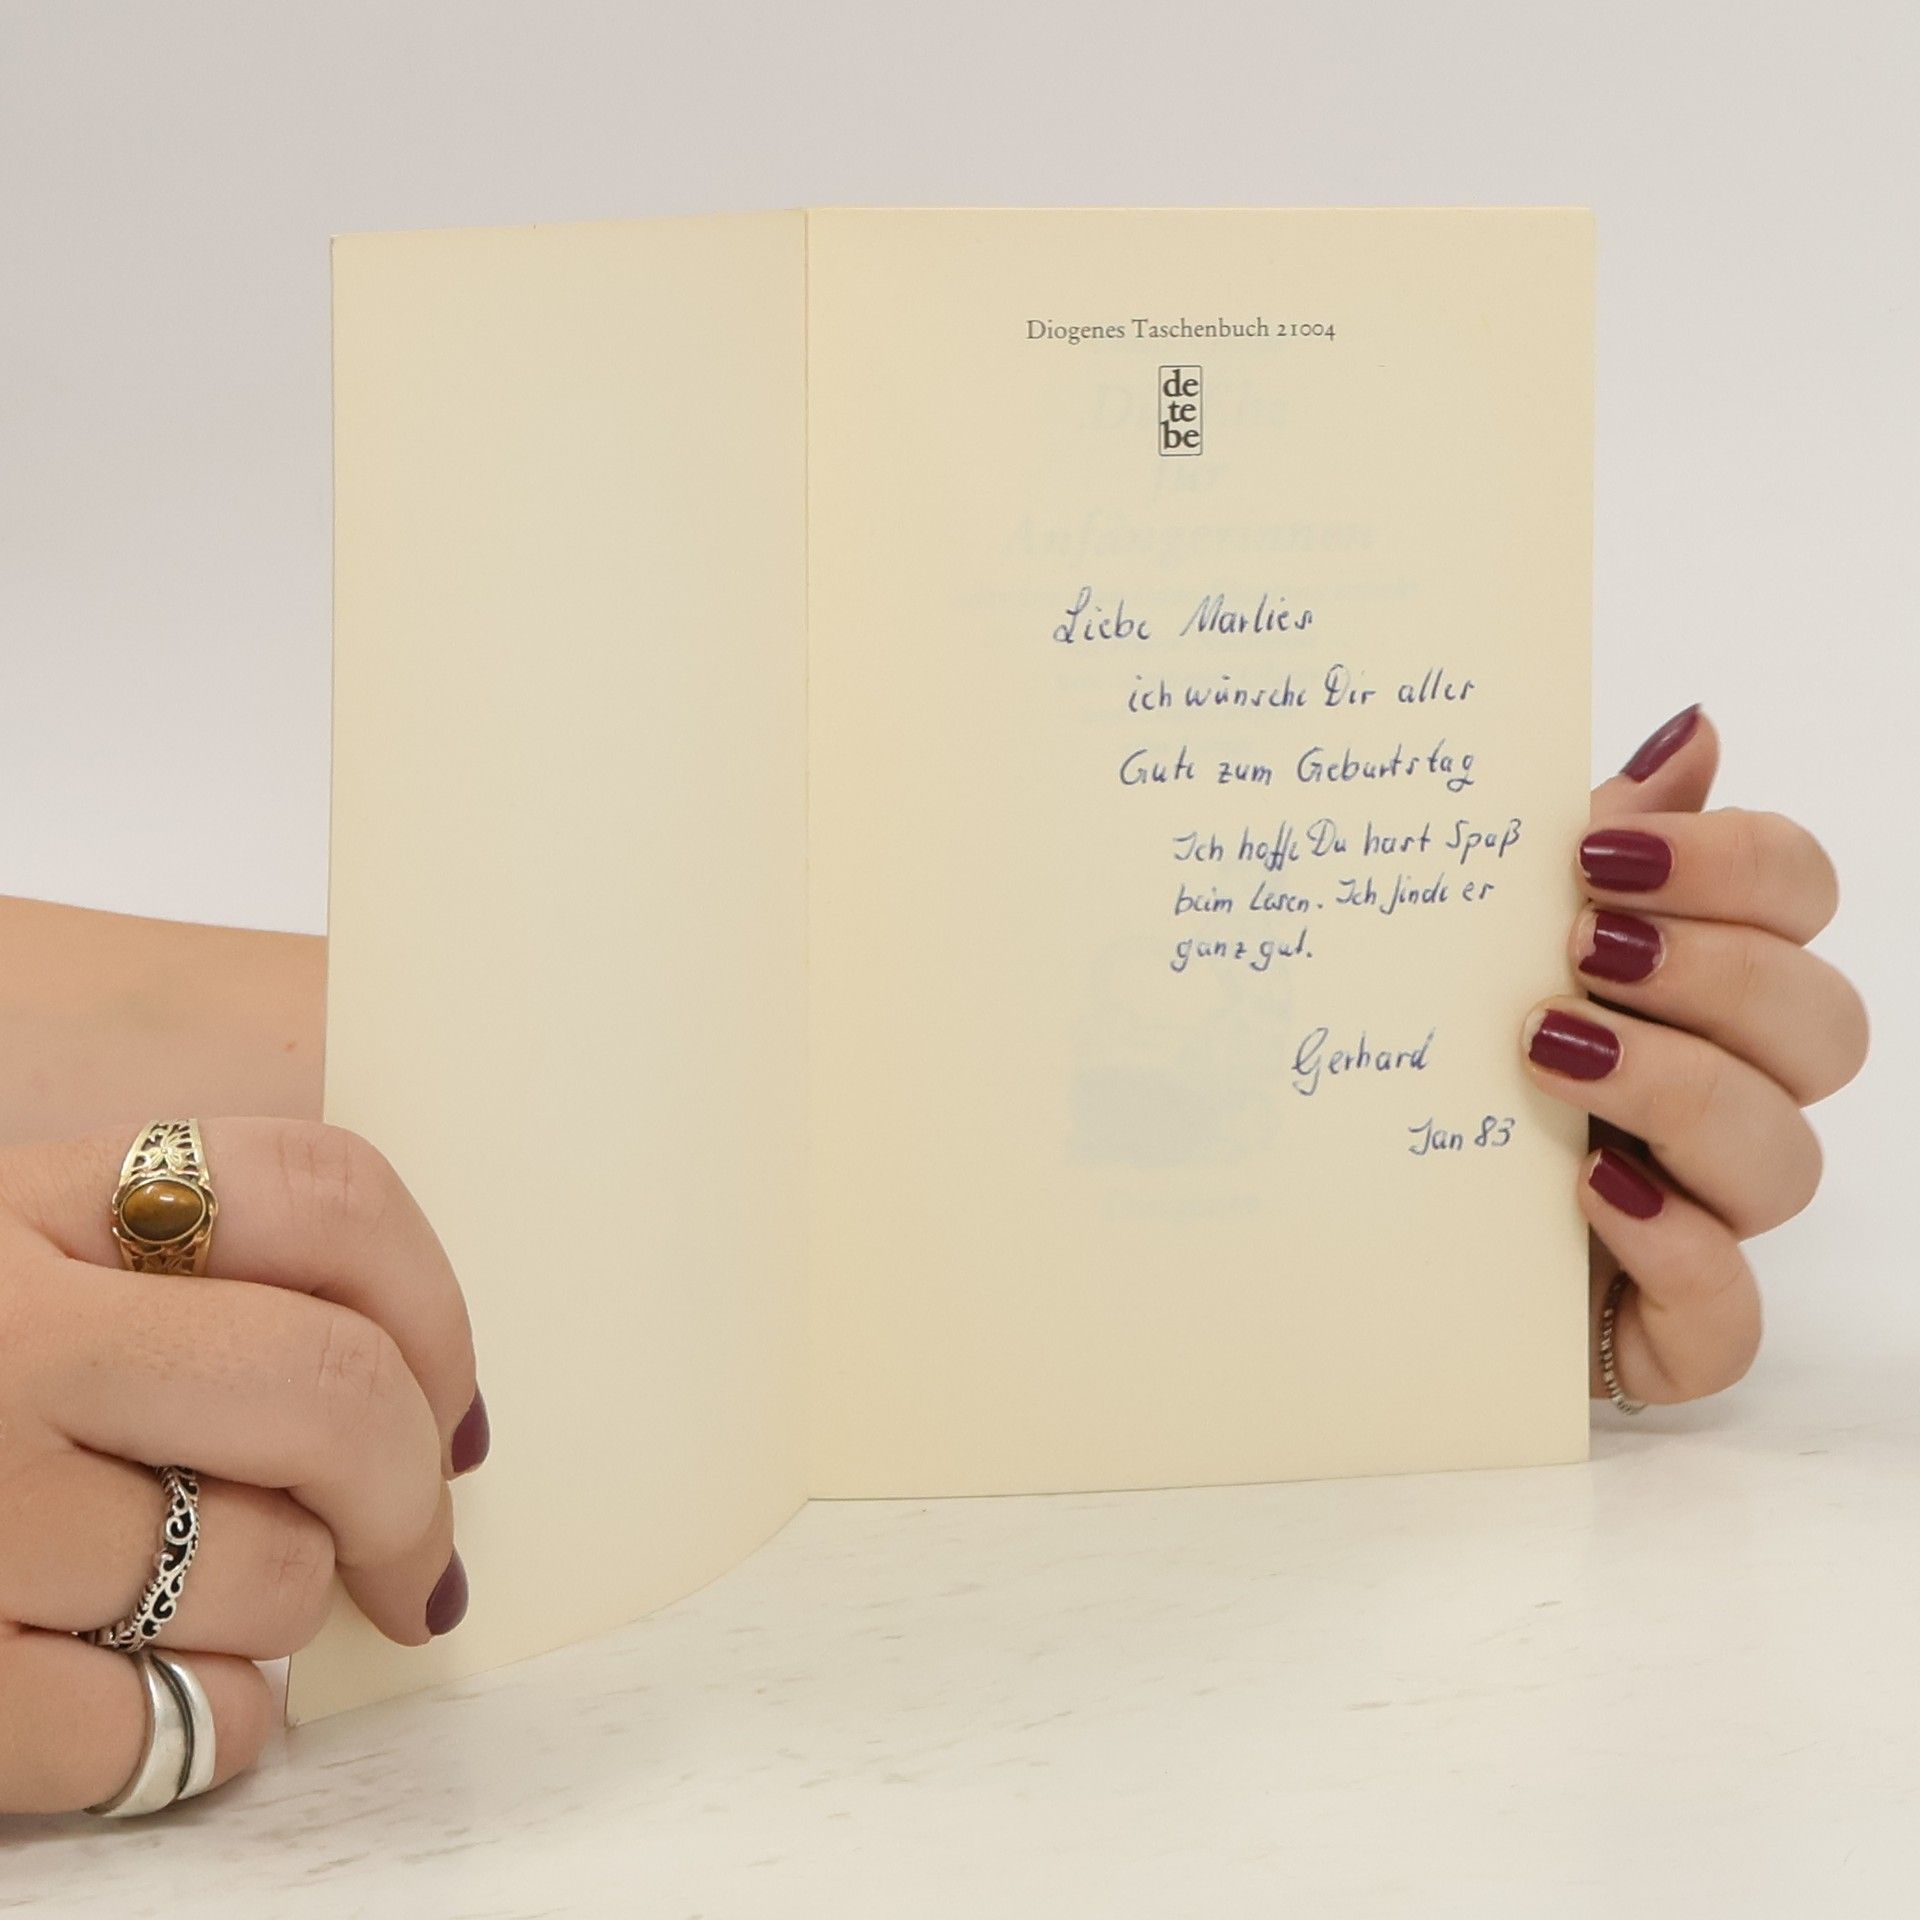 Diogenes Taschenbuch 21004
de
te
be
Liebe Marlies
ich wünsche Dir alles
Gute zum Geburtstag
Ich hoffe Du hast Spaß
beim Lesen. Ich finde es
ganz gut.
Gerhard
Jan 83